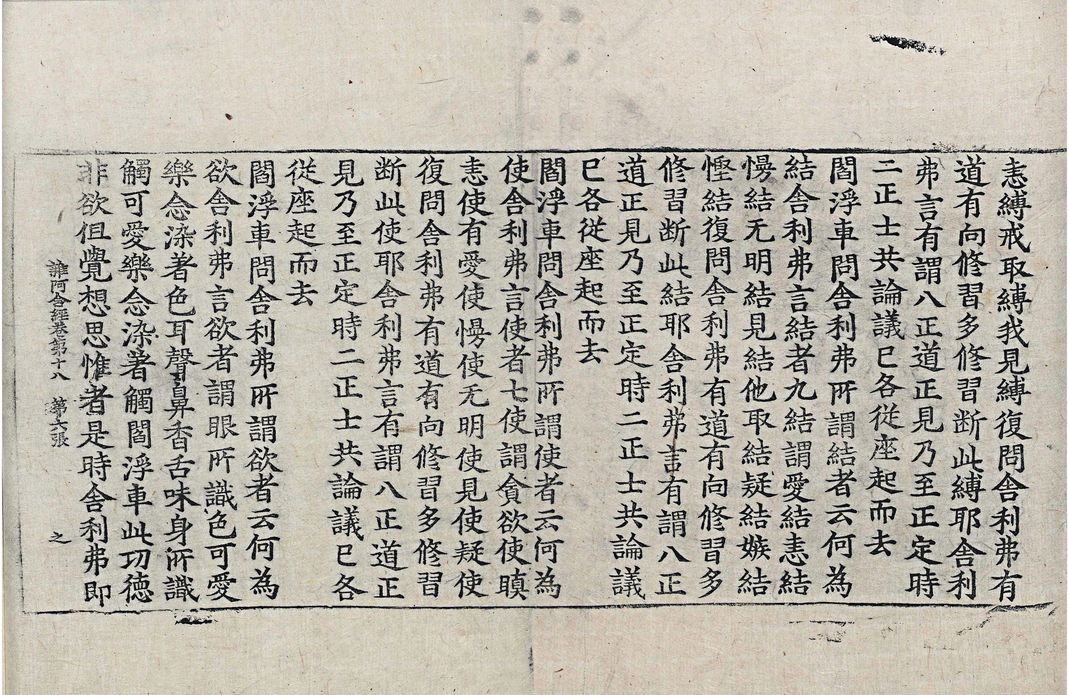 恚縛戒取縛我見縛復問舍利弗有
道有向修習多修習断此縛耶舍利
弗言有謂八正道正見乃至正定時
二正士共論議已各從座起而去
閻浮車問舍利弗所謂結者云何為
結舍利弗言結者九結謂愛結恚結
慢結无明結見結他取結疑結嫉結
慳結復問舍利弗有道有向修習多
修習断此結耶舍利弗言有謂八正
道正見乃至正定時二正士共論議
已各從座起而去
閻浮車問舍利弗所謂使者云何為
使舍利弗言使者七使謂貪欲使瞋
恚使有愛使慢使无明使見使疑使
復問舍利弗有道有向修習多修習
断此使耶舍利弗言有謂八正道正
見乃至正定時二正士共論議已各
從座起而去
閻浮車問舍利弗所謂欲者云何為
欲舍利弗言欲者謂眼所識色可愛
樂念染著色耳聲鼻香舌味身所識
觸可愛樂念染著觸閻浮車此功德
非欲但覺想思惟者是時舍利弗即
雜阿含經卷第十八 第六張 之